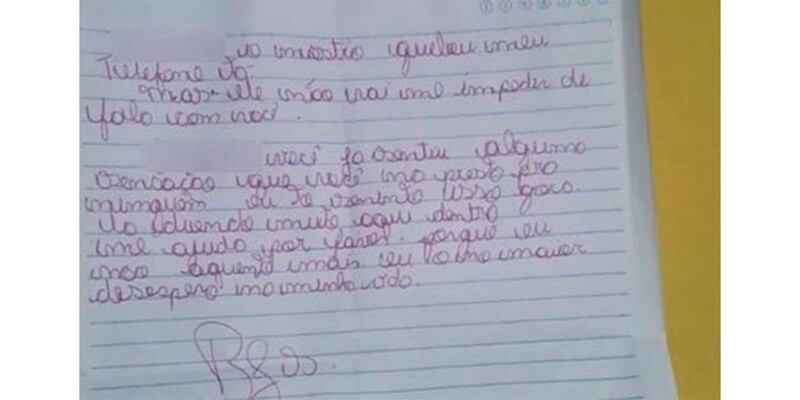 o monstro quebeu meu
Telefone tá.
mas ele não vai me impedir de
falo com você.
você ja sentiu alguma
sencaçao que você não presta pro
ninguem eu to sentindo isso agora.
to duendo muito aqui dentro
me ajuda por favor. porque eu
não aguento mais eu to no maior
desespero na minha vida.